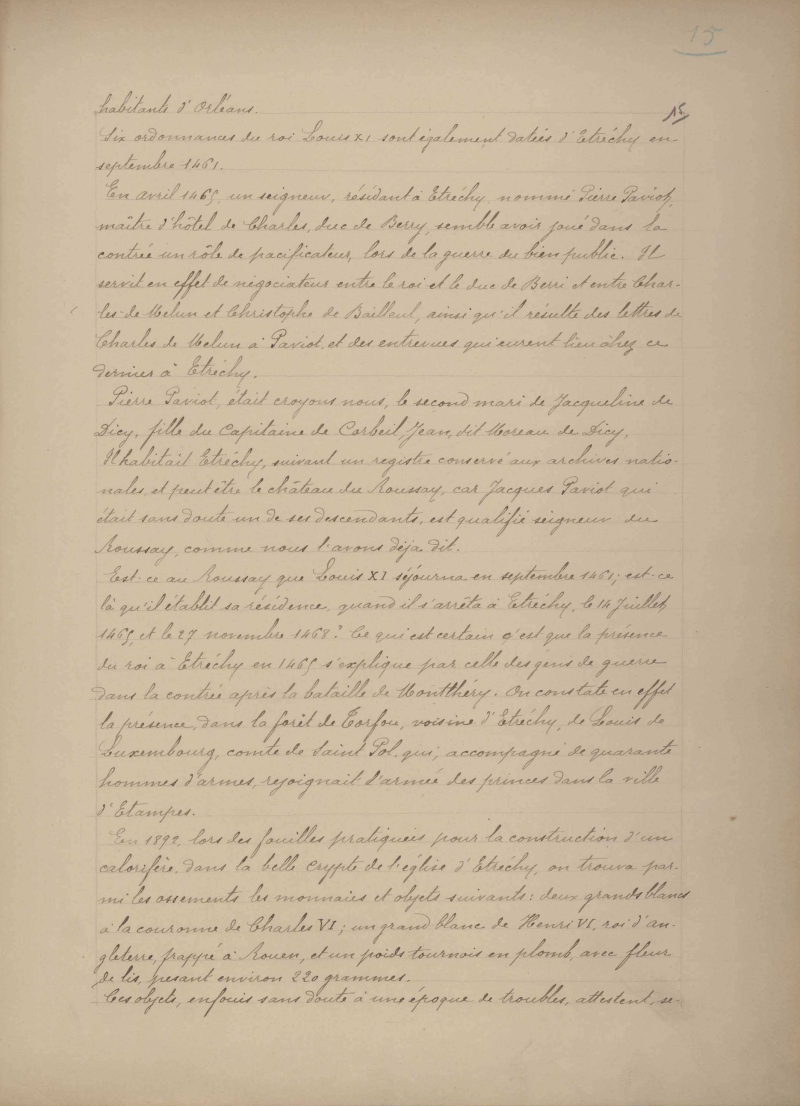 15
habitants d'Orléans.
15
Six ordonnances du roi Louis XI sont également datées d'Etréchy en
septembre 1461.
En avril 1465, un seigneur, résidant à Etréchy, nommé Pierre Paviot,
maître d'hôtel de Charles, duc de Berry, semble avoir joué dans la
contrée un rôle de pacificateur, lors de la guerre du bien public. Il
servit en effet de négociateur entre le roi et le duc de Berri et entre Char-
les de Melun et Christophe de Bailleul, ainsi qu'il résulte des lettres de
Charles de Melun à Paviot, et des entrevues qui eurent lieu chez ce
dernier à Etréchy.
Pierre Paviot, était croyons nous, le second mari de Jacqueline de
Dicy, fille du Capitaine de Corbeil, Jean, dit Moreau de Dicy,
Il habitait Etréchy, suivant un registre conservé aux archives natio-
nales, et peut être le château du Roussay, car Jacques Paviot qui
était sans doute un de ses descendants, est qualifié seigneur du
Roussay, comme nous l'avons déja dit.
Est-ce au Roussay que Louis XI séjourna en septembre 1461; est-ce
là qu'il établit sa résidence, quand il s'arrêta à Etréchy, le 14 Juillet,
1465, et le 27 novembre 1468? Ce qui est certain c'est que la présence
du roi à Etréchy en 1465 s'explique par celle des gens de guerre
dans la contrée après la bataille de Montthéry. On constate en effet
la présence, dans la forêt de Torfou, voisine d'Etréchy, de Louis de
Luxembourg, comte de Saint Pol, qui, accompagné de quarante
hommes d'armes, rejoignait l'armée des princes dans la ville
d'Etampes.
En 1892, lors des fouilles pratiquées pour la construction d'un
calorifère, dans la belle crypte de l'église d'Etréchy, on trouva par-
mi les ossements les monnaies et objets suivants: deux grands blancs
à la couronne de Charles VI; un grand blanc de Henri VI, roi d'an-
gleterre, frappé à Rouen, et un poids tournois en plomb, avec fleur
de lis, pesant environ 220 grammes.
Ces objets, enfouis sans doute à une époque de troubles, attestent, se-